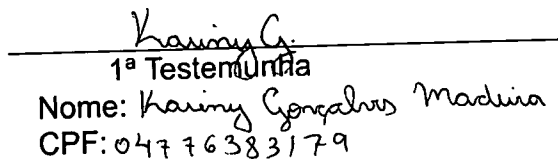 Kariny G.
1ª Testemunha
Nome: Kariny Gonçalves Madeira
CPF: 04776383179